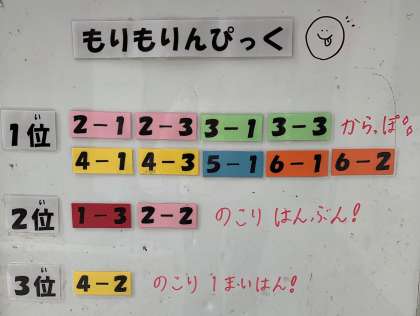 もりもりんぴっく
1位 2-1 2-3 3-1 3-3 からっぽ!!
4-1 4-3 5-1 6-1 6-2
2位 1-3 2-2 のこり はんぶん!
3位 4-2 のこり 1まいはん!